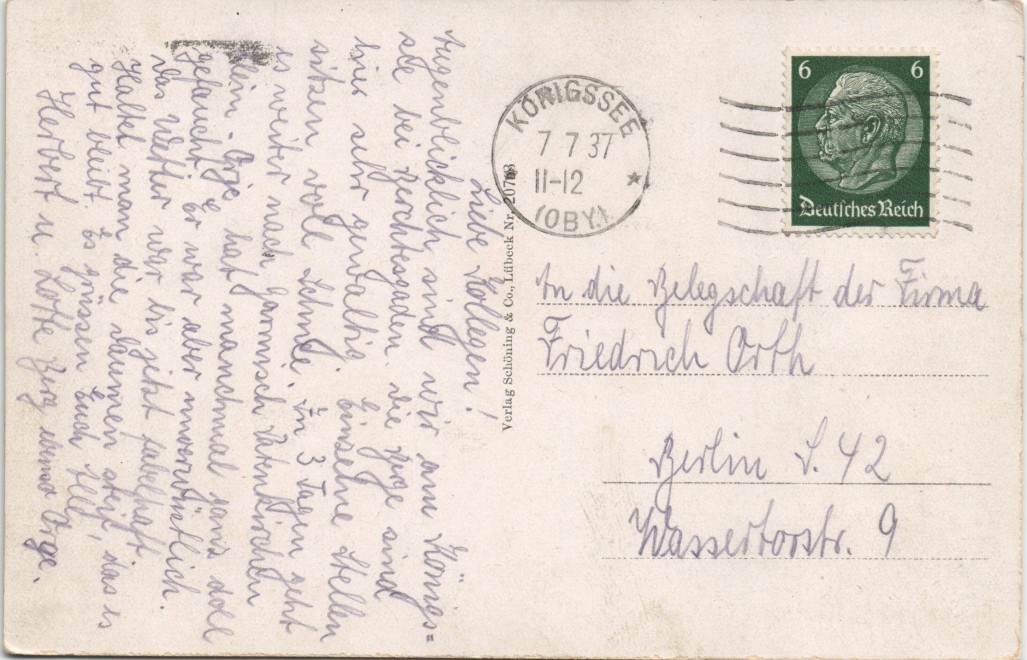 Liebe Kollegen!
Augenblicklich sind wir am Königs=
see bei Berchtesgaden. die Berge sind
hier sehr gewaltig. Einzelne Stellen
sitzen voll Schnee. In 3 Tagen geht
es weiter nach Garmisch Patenkirchen
Mein hat manchmal ganz doll
gefaucht Er war aber unverwüstlich.
das Wetter war bis jetzt fabelhaft
Haltet man die daumen steif, das es
gut bleibt. Es grüssen Euch Alle,
Herbert u. Lotte
Verlag Schöning & Co., Lübeck Nr.
KÖNIGSSEE
7 7 37
11-12
(OBY.)
6 6
Deutsches Reich
An die Belegschaft der Firma
Friedrich Orth
Berlin S. 42
Wassertorstr. 9